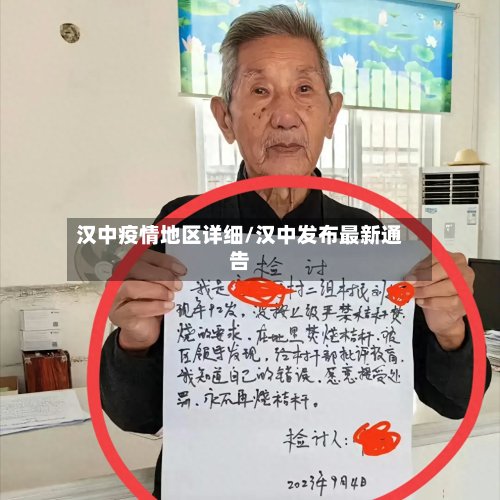 汉中疫情地区详细/汉中发布最新通
告
检讨
我是 村二组村民刘
现年92岁,没按上级严禁秸秆焚
烧的要求,在地里焚烧秸秆,被
区领导发现,给村干部批评教育,
我知道自己的错误,愿意接受处
罚,永不再烧秸秆。
检讨人:
2023年9月4日